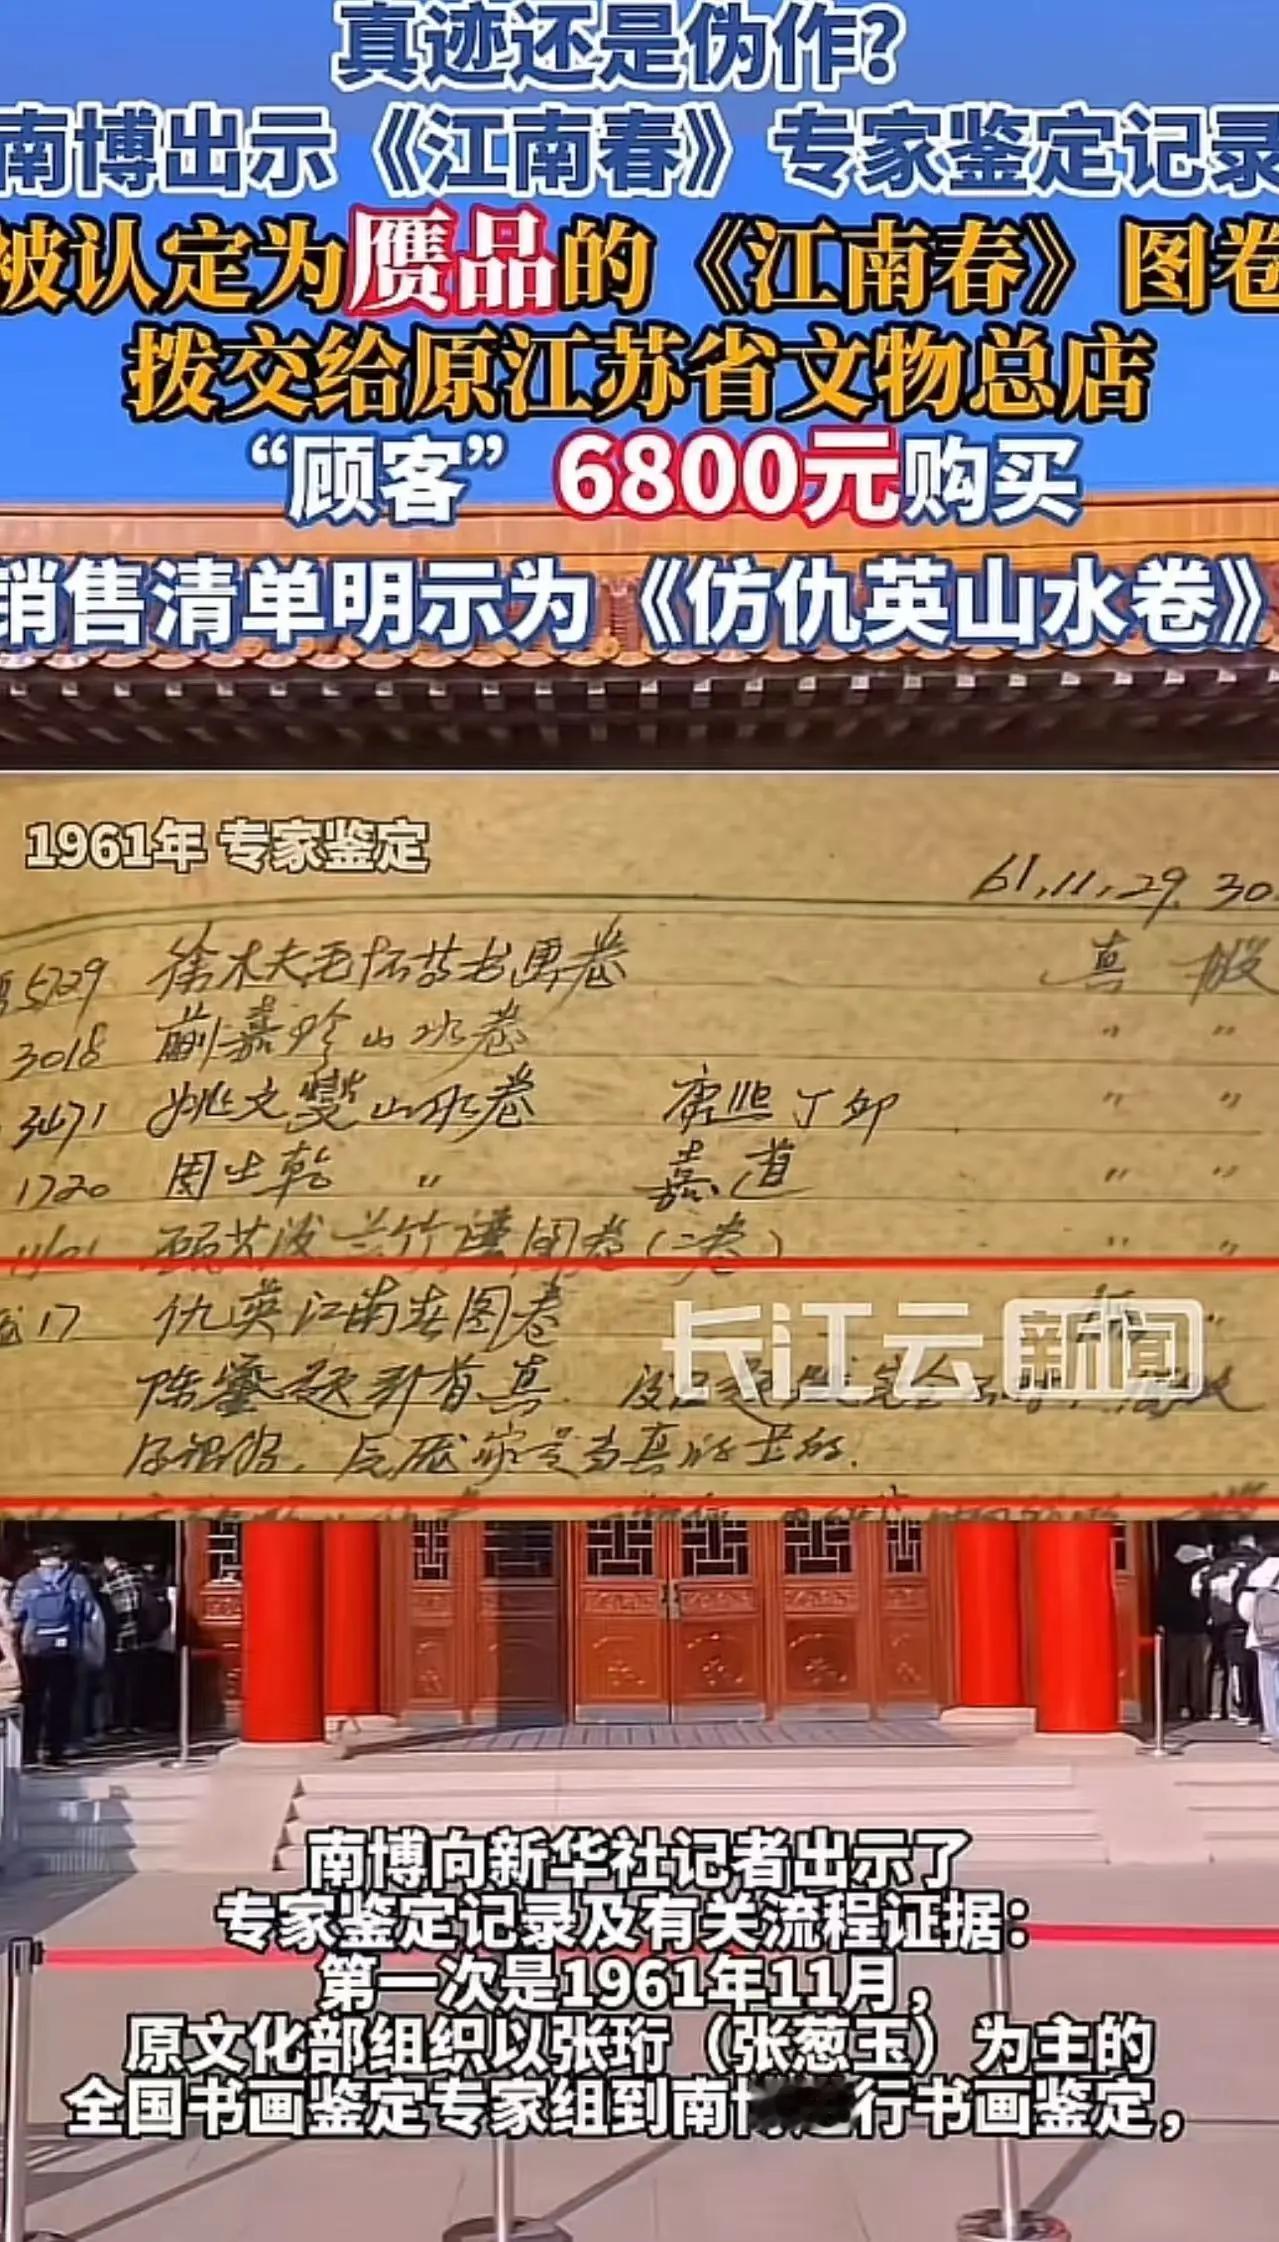 真迹还是伪作?
南博出示《江南春》专家鉴定记录
被认定为赝品的《江南春》图卷
拨交给原江苏省文物总店
“顾客”6800元购买
销售清单明示为《仿仇英山水卷》
1961年 专家鉴定
61.11.29.30
5729 徐木夫毛怀苏书画卷 真
3018 山水卷 〃 〃
3471 姚文燮山水卷 康熙丁卯 〃 〃
1720 周生乾 〃 嘉道 〃 〃
图卷(二卷) 〃 〃
17 仇英江南春图卷 〃
陈鎏题引首真
长江云新闻
南博向新华社记者出示了
专家鉴定记录及有关流程证据:
第一次是1961年11月,
原文化部组织以张珩(张葱玉)为主的
全国书画鉴定专家组到南 行书画鉴定,